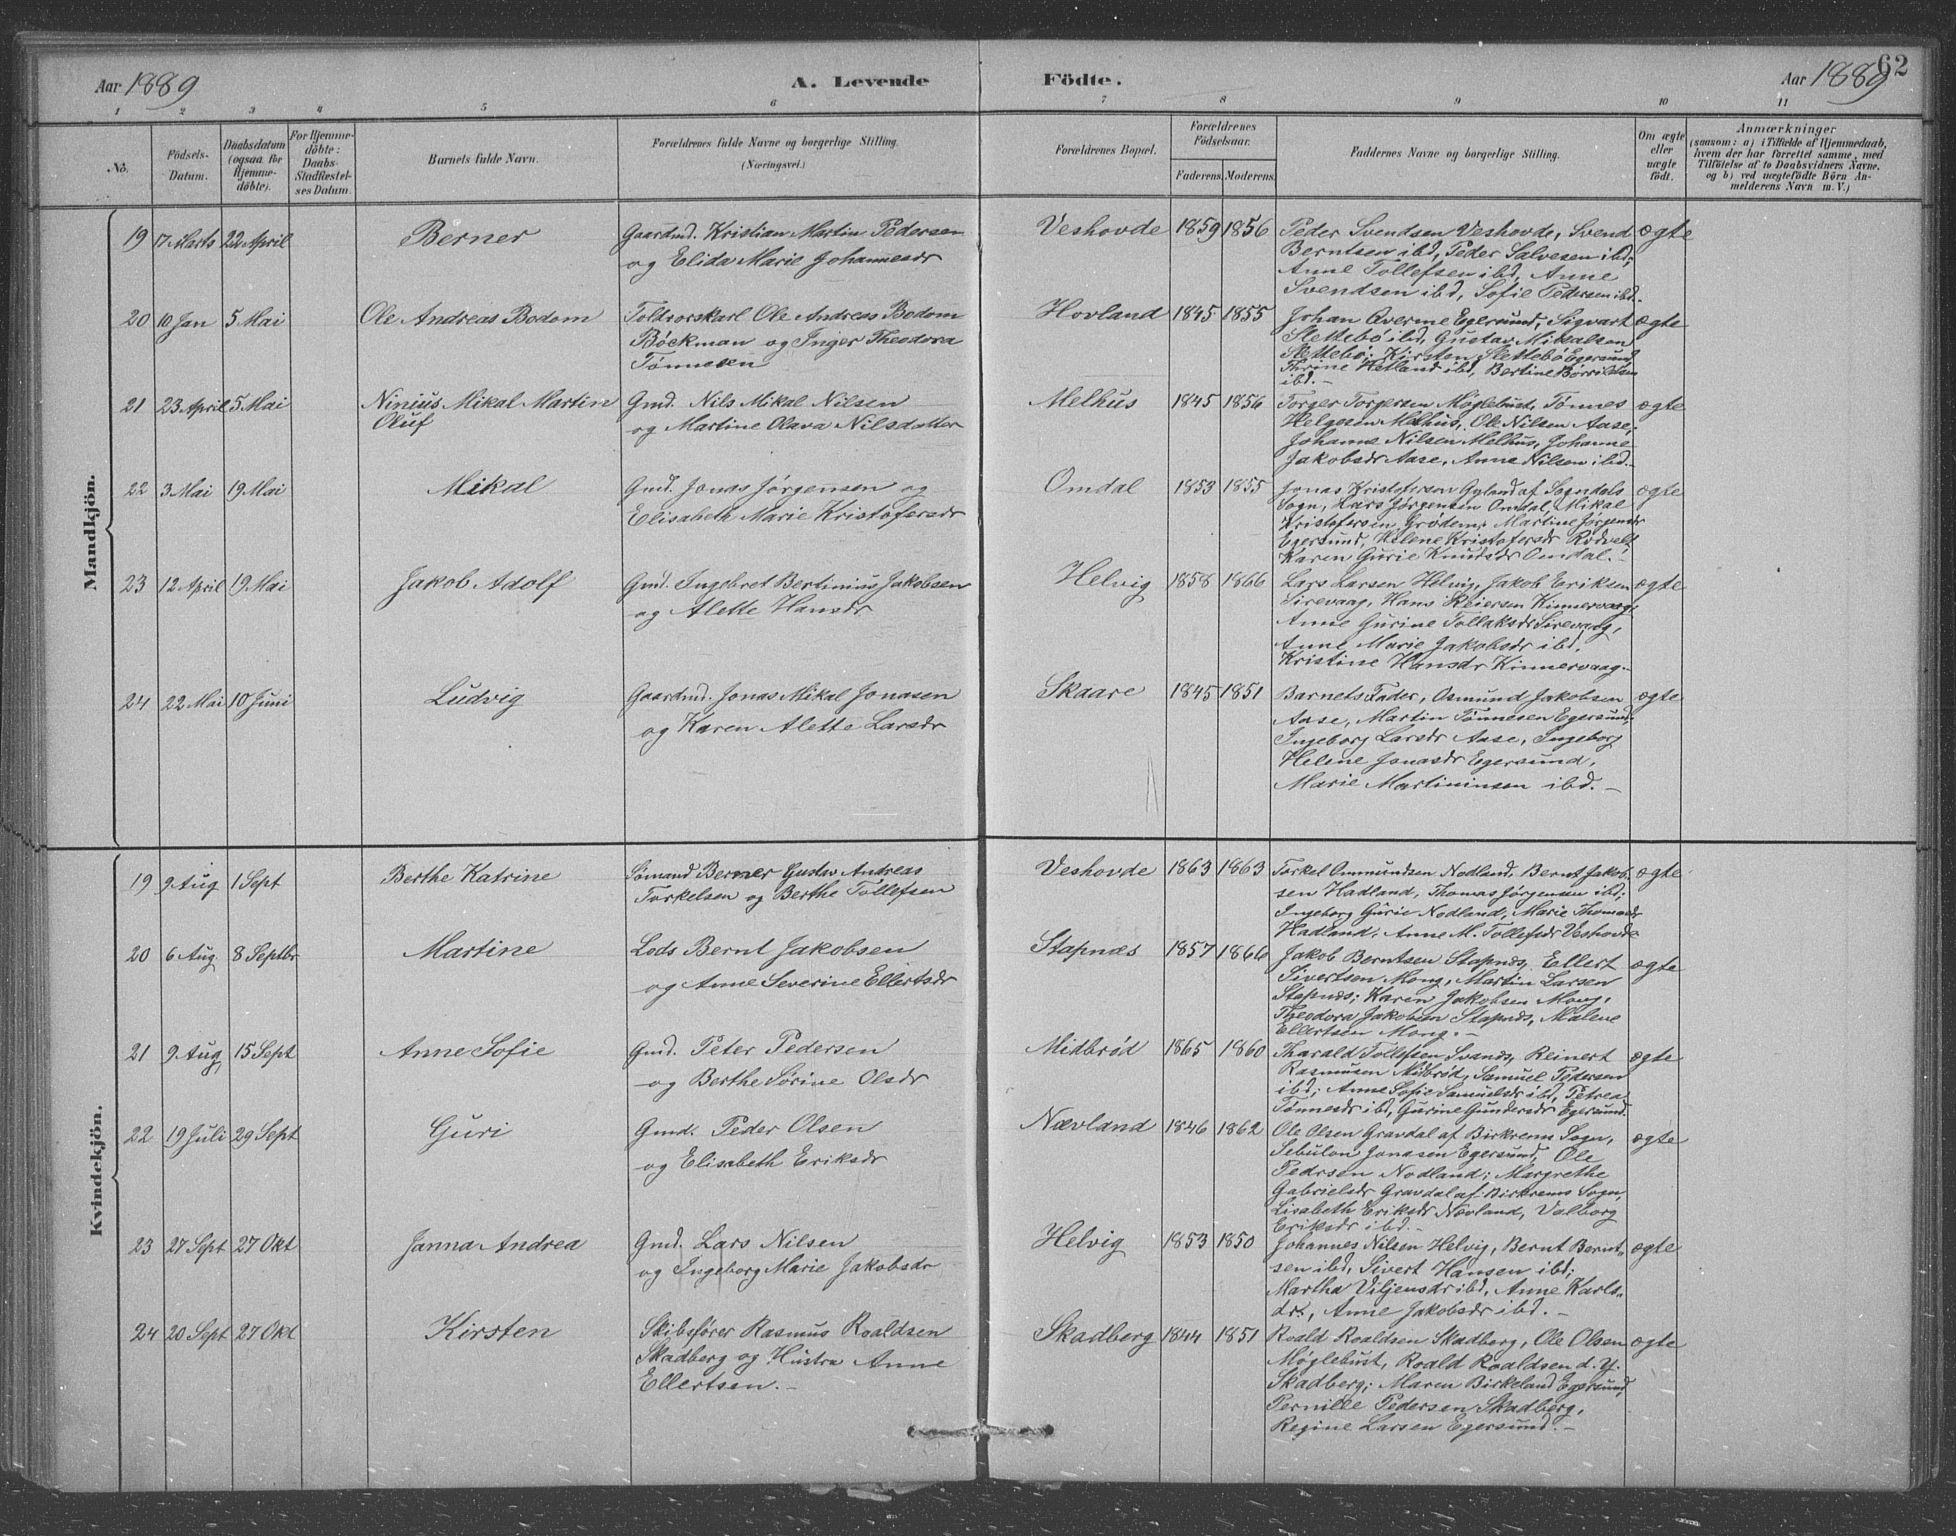 Aar 1889 A. Levende Födte. Aar 1889 62
1 2 3 4 5 6 7 8 9 10 11
No. Födsels-Datum. Daabsdatum (ogsaa for Hjemmedöbte). For Hjemmedöbte: Daabs-Stadfæstelses Datum. Barnets fulde Navn. Forældrenes fulde Navne og borgerlige Stilling. (Næringsvei.) Forældrenes Bopæl. Forældrenes Födselsaar. Faderens. Moderens. Faddernes Navne og borgerlige Stilling. Om ægte eller uægte födt. Anmærkninger (saasom: a) i Tilfælde af Hjemmedaab, hvem der har forrettet samme, med Tilföielse af to Daabsvidners Navne, og b) ved uægtefödte Börn Anmelderens Navn m. V.)
Mandkjön.
19 17 Marts 22 April Berner Gaardmd. Kristian Martin Pedersen Veshovde 1859 1856 Peder Svendsen Veshovde, Svend ægte
og Elida Marie Johannesdr Berntsen ibd, Peder Salvesen ibd;
Anne Tollefsen ibd, Anne
Svendsen ibd, Sofie Pedersen ibd.
20 10 Jan 5 Mai Ole Andreas Bodom Toldrorskarl Ole Andreas Bodom Hovland 1845 1855 Johan Øverme Egersund, Sigvart ægte
Böckman og Inger Theodora Slettebö ibd, Gustav Mikalsen
Tönnesen Slettebö; Kirsten Slettebö Egersund
Thrine Hetland ibd, Bertine Börrildsen
ibd.-
21 23 April 5 Mai Ninius Mikal Martin Gmd. Nils Mikal Nilsen Melhus 1845 1856 Torger Torgersen Möglebust, Tönnes ægte
Oluf og Martine Olava Nilsdatter Helgesen Melhus, Ole Nilsen Aase;
Johanne Nilsen Melhus, Johanne
Jakobsdr Aase, Anne Nilsen ibd.-
22 3 Mai 19 Mai Mikal Gmd. Jonas Jörgensen og Omdal 1853 1855 Jonas Kristofersen Gyland af Sogndals ægte
Elisabeth Marie Kristofersdr Sogn, Lars Jörgensen Omdal, Mikal
Kristofersen Grödem; Martine Jörgensdr
Egersund, Helene Kristofersdr Rödvelt
Karen Gurie Knudsdr Omdal.-
23 12 April 19 Mai Jakob Adolf Gmd. Ingebret Bertinius Jakobsen Helvig 1858 1866 Lars Larsen Helvig, Jakob Eriksen ægte
og Alette Hansdr Sirevaag, Hans Reiersen Kinnervaag;
Anne Gurine Tollaksdr Sirevaag,
Anne Marie Jakobsdr ibd,
Kristine Hansdr Kinnervaag.-
24 22 Mai 10 Juni Ludvig Gaardmd. Jonas Mikal Jonasen Skaare 1845 1851 Barnets Fader, Osmund Jakobsen ægte
og Karen Alette Larsdr Aase, Martin Tönnesen Egersund;
Ingeborg Larsdr Aase, Ingeborg
Helene Jonasdr Egersund,
Marie Martininsen ibd.-
Kvindekjön.
19 9 Aug 1 Sept Berthe Katrine Sömand Berner Gustav Andreas Veshovde 1863 1863 Torkel Ommundsen Nodland, Bernt Jakob- ægte
Torkelsen og Berthe Tollefsen sen Hadland, Thomas Jörgensen ibd;
Ingeborg Gurie Nodland, Marie Thomasdr
Hadland, Anne M. Tollefsdr Veshovde
20 6 Aug. 8 Septbr Martine Lods Bernt Jakobsen Stapnæs 1857 1866 Jakob Berntsen Stapnæs, Ellert ægte
og Anne Severine Ellertsdr Sivertsen Mong, Martin Larsen
Stapnæs; Karen Jakobsen Mong,
Theodora Jakobsen Stapnæs, Malene
Ellertsen Mong.-
21 9 Aug 15 Sept Anne Sofie Gmd. Peter Pedersen Midbröd 1865 1860 Tharald Tollefsen Svanæs, Reinert ægte
og Berthe Sörine Olsdr Rasmusen Midbröd, Samuel Pedersen
ibd; Anne Sofie Samuelsdr ibd, Petrea
Tönnesdr ibd, Gurine Gundersdr Egersund.
22 19 Juli 29 Sept Guri Gmd. Peder Olsen Nævland 1846 1862 Ole Olsen Gravdal af Birkrems Sogn, ægte
og Elisabeth Eriksdr Sebulon Jonasen Egersund, Ole
Pedersen Nodland; Margrethe
Gabrielsdr Gravdal af Birkrems Sogn,
Lisabeth Eriksdr Nævland, Valborg
Eriksdr ibd.-
23 27 Sept 27 Okt Janna Andrea Gmd. Lars Nilsen Helvig 1853 1850 Johannes Nilsen Helvig, Bernt Bernt- ægte
og Ingeborg Marie Jakobsdr sen ibd, Sivert Hansen ibd;
Martha Viljensdr ibd, Anne Karls-
dr., Anne Jakobsdr ibd.-
24 20 Sept 27 Okt Kirsten Skibsförer Rasmus Roaldsen Skadberg 1844 1851 Roald Roaldsen Skadberg, Ole Olsen ægte
Skadberg og Hustru Anne Möglebust, Roald Roaldsen d. y.
Ellertsen.- Skadberg; Maren Birkeland Egersund,
Pernille Pedersen Skadberg,
Regine Larsen Egersund.-